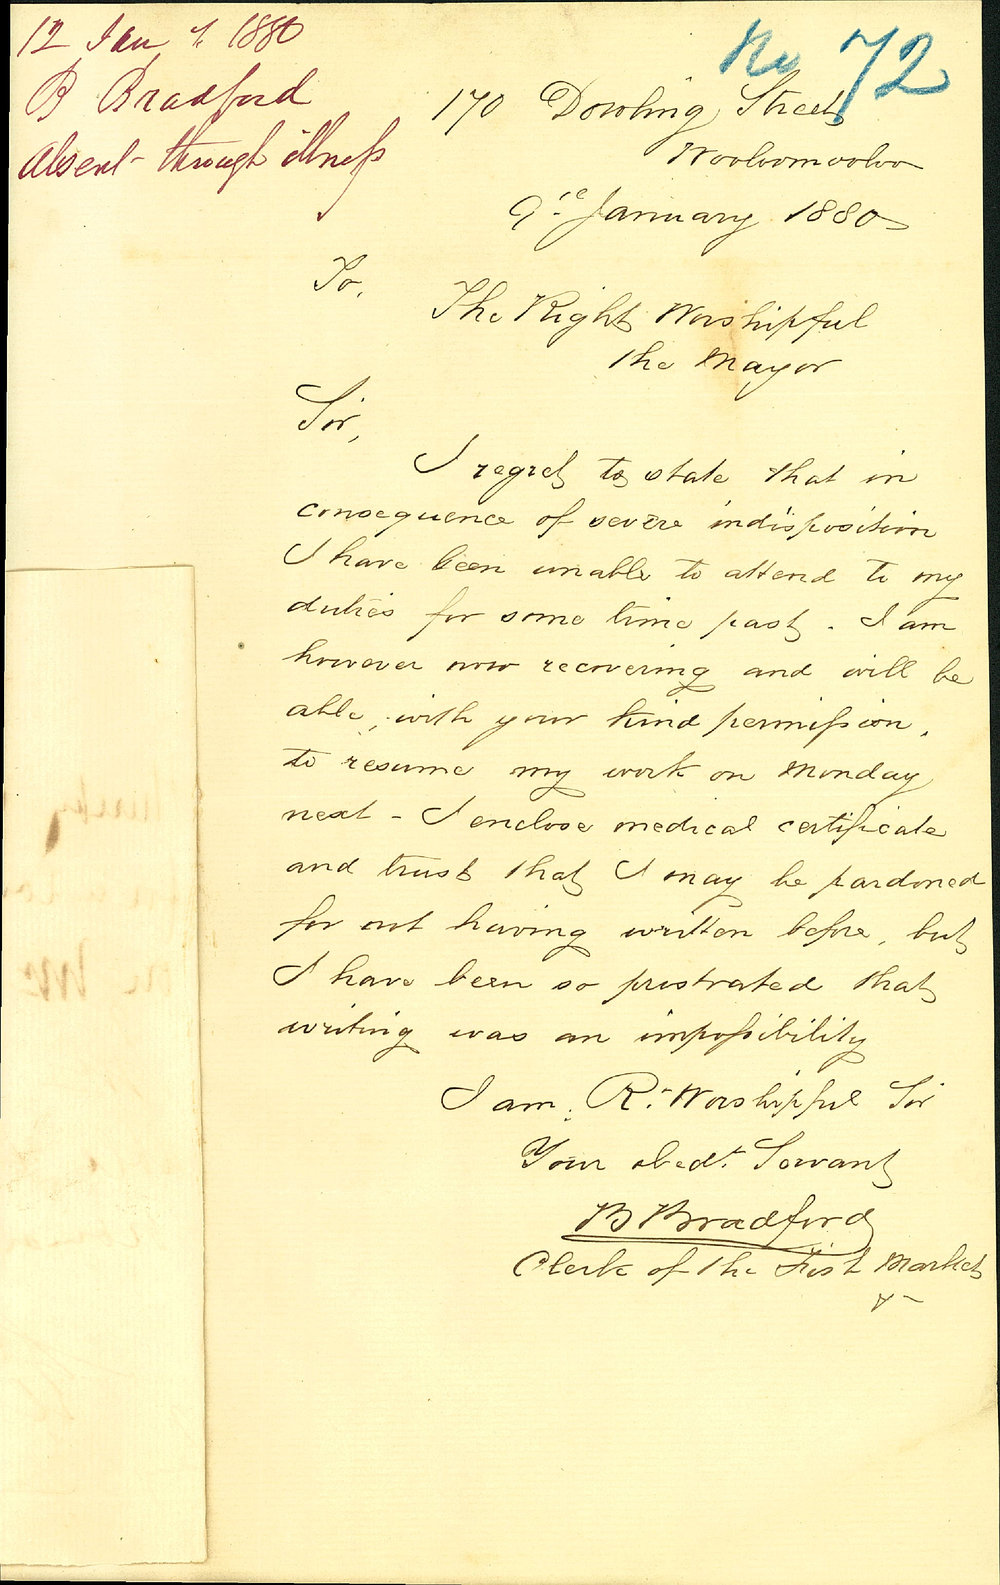 12 Jan y. 1880
B Bradford
Absent through illness
No 72
170 Dowling Street
Wooloomooloo
9th January 1880
To,
The Right Worshipful
the Mayor
Sir,
I regret to state that in
consequence of severe indisposition
I have been unable to attend to my
duties for some time past. I am
however now recovering and will be
able, with your kind permission,
to resume my work on Monday
next - I enclose medical certificate
and trust that I may be pardoned
for not having written before, but
I have been so prostrated that
writing was an impossibility
I am, Rt. Worshipful Sir
Your obedt. Servant
B Bradford
Clerk of the Fish Market